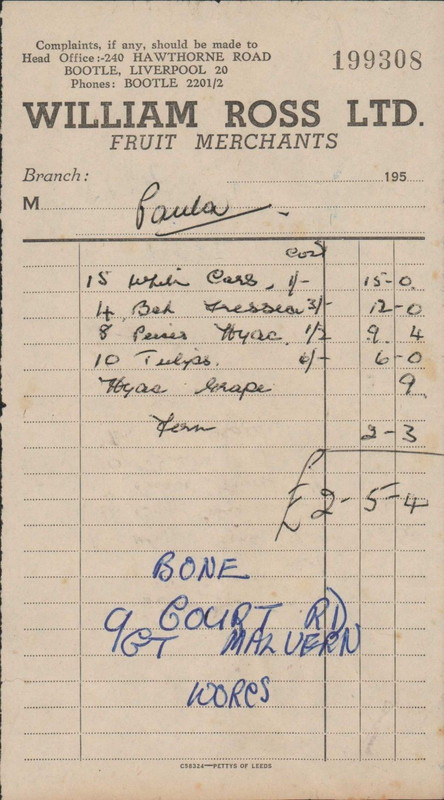 Complaints, if any, should be made to
Head Office:-240 HAWTHORNE ROAD
BOOTLE, LIVERPOOL 20
Phones: BOOTLE 2201/2
199308
WILLIAM ROSS LTD.
FRUIT MERCHANTS
Branch: 195
M Paula
Cost
15 White Cars, 1/- 15-0
4 3/- 12-0
8 Hyac. 1/2 9.4
10 Tulips. 6/- 6-0
Hyac Grape 9
Fern 2-3
£2-5-4
BONE
9 COURT RD
GT MALVERN
WORCS
C58324—PETTYS OF LEEDS